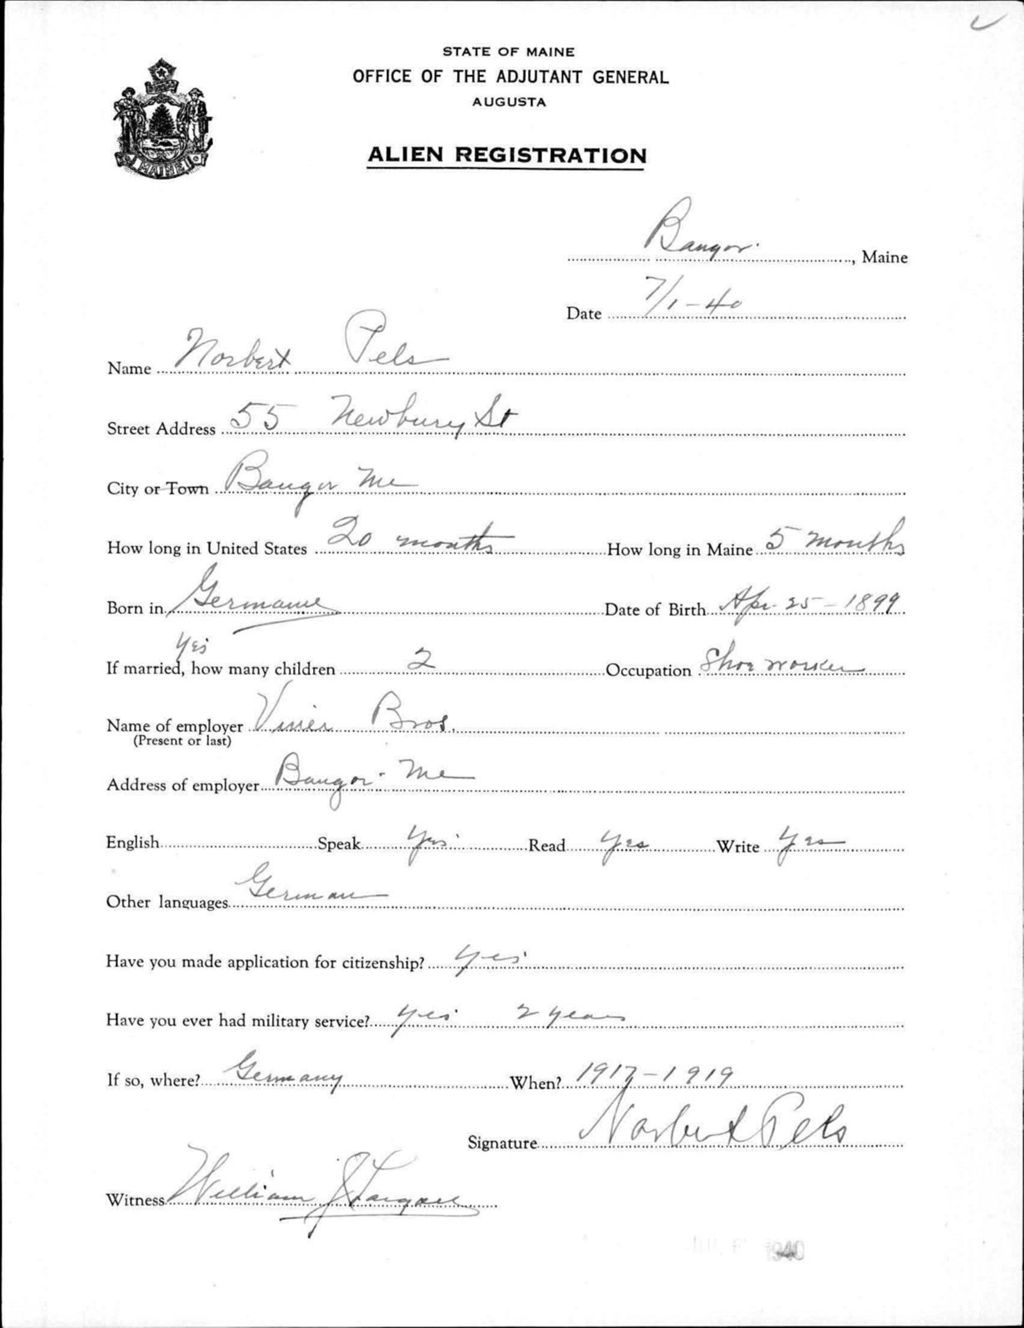 STATE OF MAINE
OFFICE OF THE ADJUTANT GENERAL
AUGUSTA
ALIEN REGISTRATION
MAINE
Bangor, Maine
Date 7/1-40
Name Norbert Pels
Street Address 55 Newbury St
City or Town Bangor Me
How long in United States 20 months How long in Maine 5 months
Born in Germanie Date of Birth Apr 25-1899
Yes
If married, how many children 2 Occupation Shoe worker
Name of employer Bros.
(Present or last)
Address of employer Bangor Me
English Speak Yes Read Yes Write Yes
Other languages German
Have you made application for citizenship? yes
Have you ever had military service? yes 2 years
If so, where? Germany When? 1917-1919
Signature Norbert Pels
Witness William J
1940